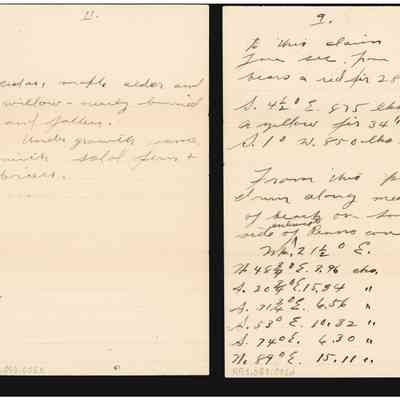 11.
cedar, maple alder and
willow - nearly burned
and fallen.
Under growth same,
with salal fern +
briers.
9.
to this claim
bears a red fir 28
S. 4½° E. 875 lks
a yellow fir 34"
S. 1° W. 850 lks
From this p
down along mea
of beach on
side of
21½° E.
N 48¾° E. 7.96 chs.
S. 20¾° E. 15.94 "
S. 71¾° E. 6.56 "
S. 53° E. 10.32 "
S. 74° E. 6.30 "
N. 89° E. 15.11 "